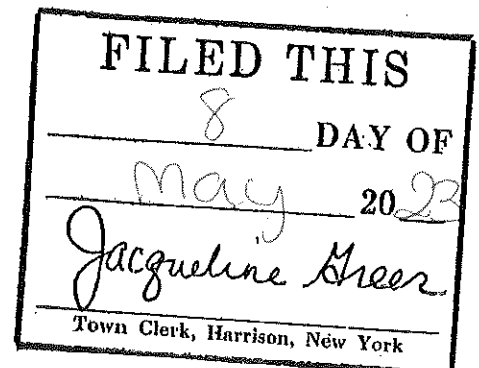 FILED THIS
8 DAY OF
May 2023
Jacqueline Greer
Town Clerk, Harrison, New York